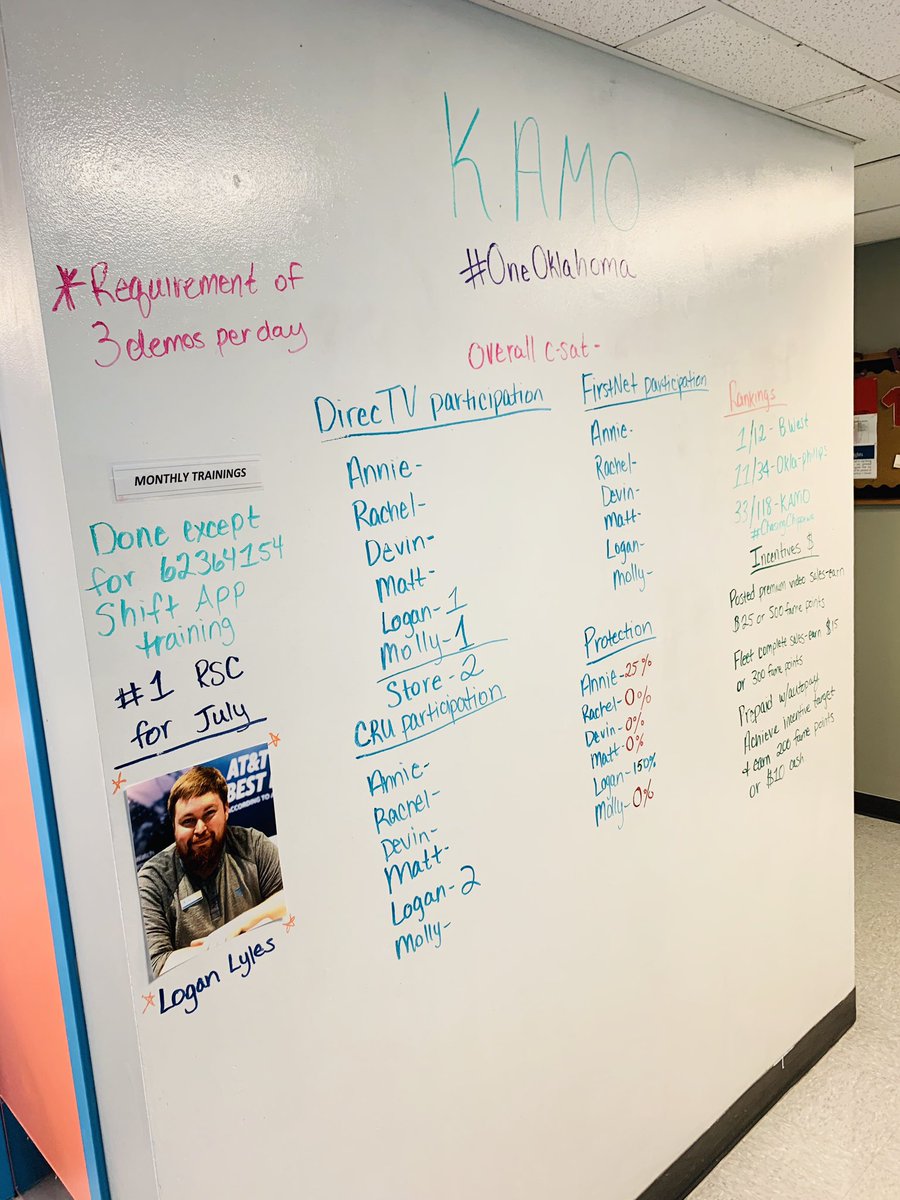 KAMO
#OneOklahoma
*Requirement of
3 demos per day
Overall c-sat-
MONTHLY TRAININGS
Done except
for 62364154
Shift App
training
#1 RSC
for July
AT&T
BEST
ACCORDING TO
Logan Lyles
DirecTV participation
Annie-
Rachel-
Devin-
Matt-
Logan-1
Molly-1
Store-2
CRU participation
Annie-
Rachel-
Devin-
Matt-
Logan-2
Molly-
FirstNet participation
Annie-
Rachel-
Devin-
Matt-
Logan-
Molly-
Protection
Annie-25%
Rachel-0%
Devin-0%
Matt-0%
Logan-150%
Molly-0%
Rankings
1/12-B.West
11/34-Okla-phillips
33/118-KAMO
#ChasingChippewa
Incentives $
Posted premium video sales-earn
$25 or 500 fame points
Fleet complete sales-earn $15
or 300 fame points
Prepaid w/autopay
Achieve incentive target
+ earn 200 fame points
or $10 cash